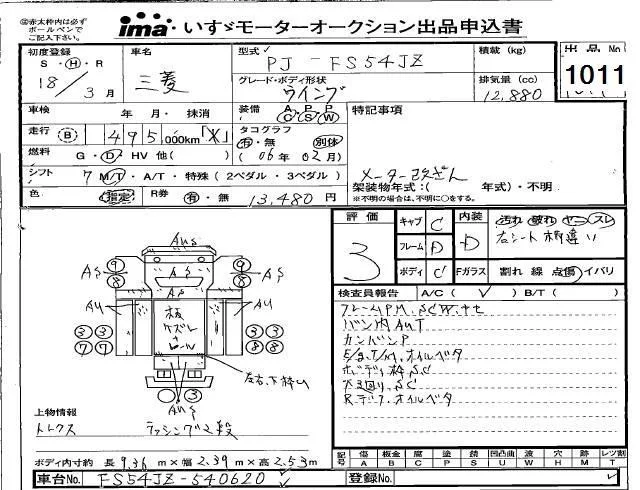 ㊟赤太枠内は必ず
ボールペンで
ご記入下さい。
ima いすゞモーターオークション出品申込書
初度登録
S・H・R
18/3月
車名
三菱
型式
PJ-FS54JZ
グレード・ボディ形状
ウイング
積載 (kg)
排気量 (cc)
12,880
出品No
1011
車検 年・月・抹消
装備 A P P
C S W
特記事項
走行 B 495,000km
タコグラフ
有・無 別体
(06年02月)
燃料 G・D・HV 他( )
シフト 7 M/T・A/T・特殊(2ペダル・3ペダル)
メーター改ざん
架装物年式:( 年式)・不明
※不明の場合は、不明に○をする。
色 指定 R券 有・無 13,480円
評価
3
キャブ C
フレーム D
ボディ C
内装 D
Fガラス
汚れ 破れ ヤニ スレ
右シート柄違い
割れ 線 点傷 イバリ
検査員報告 A/C( ✓ ) B/T( )
フレームPM、SCW、サビ
バン内AUT
カンバンP
E/g、T/M、オイルベタ
ボディ枠SC
下廻り、SC
Rデフ、オイルベタ
AUS
AS 9 8 AS
AS
AP
AU AU
3 3 3 3
7 7 8 8
板
左右、下枠U
3
AUS
上物情報
トレクス ラッシング2段
ボディ内寸約 長9.36m×幅2.39m×高2.53m
記号 傷 板金 腐 塗 錆 凹凸曲 波 穴 跡 レツ割
A B C P S U W H M T
車台No. FS54JZ-540620
登録No.